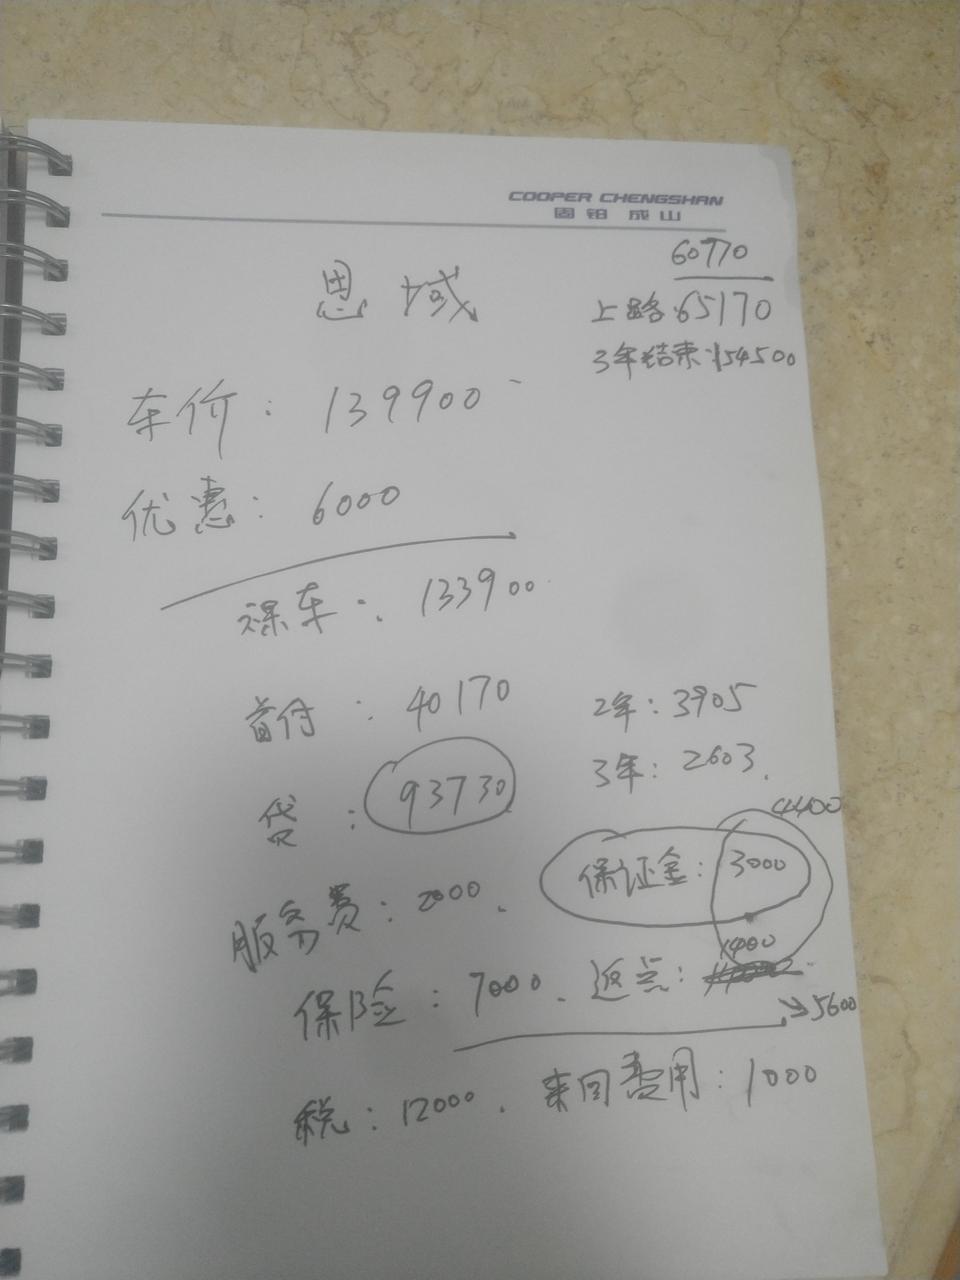 COOPER CHENGSHAN
固铂成山
60770
上路:65170
3年结束:154500
思域
车价: 139900
优惠: 6000
裸车: 133900
首付: 40170
2年: 3905
贷: 93730
3年: 2603.
4400
服务费: 2000.
保证金: 3000
1400
保险: 7000. 返点:
5600
税: 12000. 来回费用: 1000